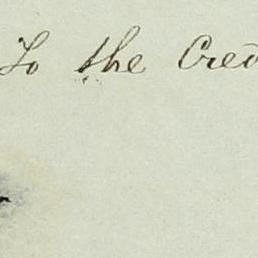 To the Cred